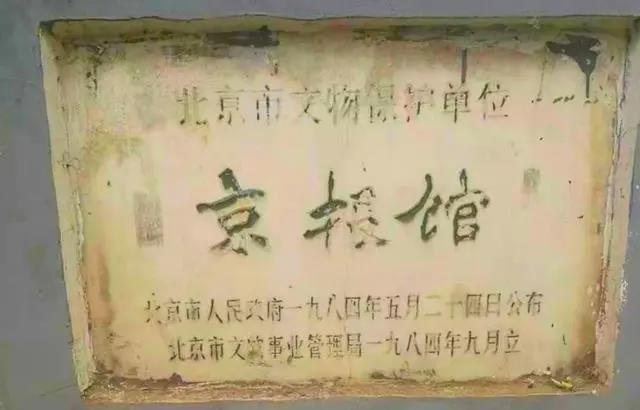 北京市文物保护单位
京报馆
北京市人民政府一九八四年五月二十四日公布
北京市文物事业管理局一九八四年九月立